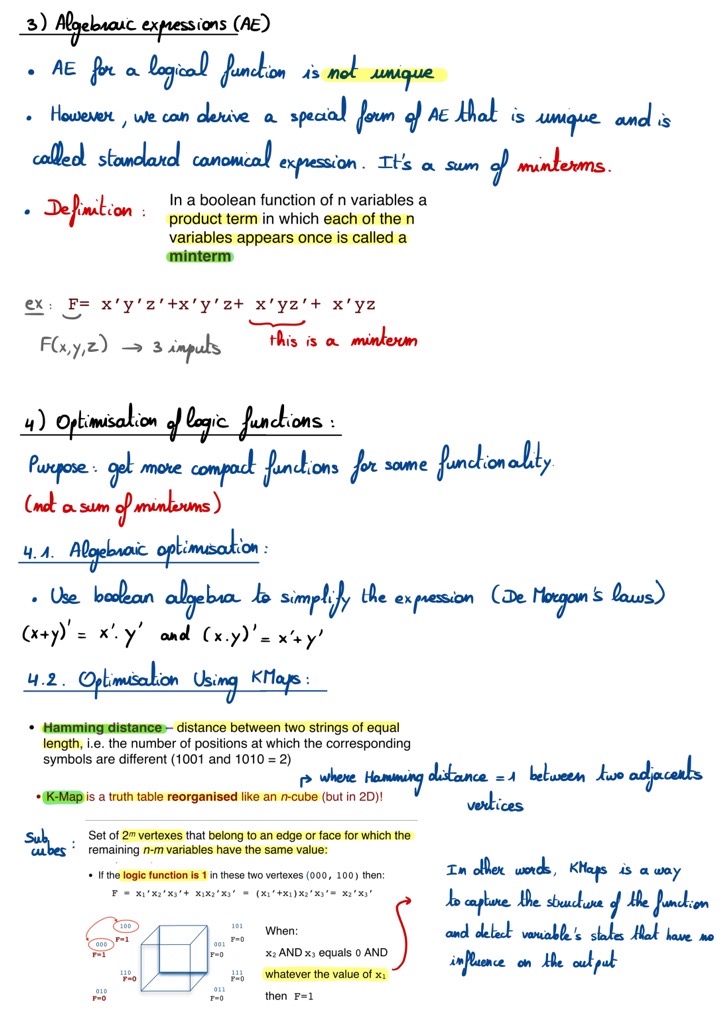 3) Algebraic expressions (AE)
• AE for a logical function is not unique
• However, we can derive a special form of AE that is unique and is
called standard canonical expression. It's a sum of minterms.
• Definition :
In a boolean function of n variables a
product term in which each of the n
variables appears once is called a
minterm
ex : F= x'y'z'+x'y'z+ x'yz'+ x'yz
F(x,y,z) → 3 inputs
this is a minterm
4) Optimisation of logic functions :
Purpose : get more compact functions for same functionality.
(not a sum of minterms)
4.1. Algebraic optimisation :
• Use boolean algebra to simplify the expression (De Morgan's laws)
(x+y)' = x'. y' and (x.y)' = x'+ y'
4.2. Optimisation Using KMaps :
• Hamming distance – distance between two strings of equal
length, i.e. the number of positions at which the corresponding
symbols are different (1001 and 1010 = 2)
↱ where Hamming distance = 1 between two adjacents
vertices
• K-Map is a truth table reorganised like an n-cube (but in 2D)!
Sub
cubes :
Set of 2ᵐ vertexes that belong to an edge or face for which the
remaining n-m variables have the same value:
• If the logic function is 1 in these two vertexes (000, 100) then:
F = x₁'x₂'x₃'+ x₁x₂'x₃' = (x₁'+x₁)x₂'x₃'= x₂'x₃'
100
F=1
000
F=1
101
F=0
001
F=0
110
F=0
010
F=0
111
F=0
011
F=0
When:
x₂ AND x₃ equals 0 AND
whatever the value of x₁
then F=1
In other words, KMaps is a way
to capture the structure of the function
and detect variable's states that have no
influence on the output